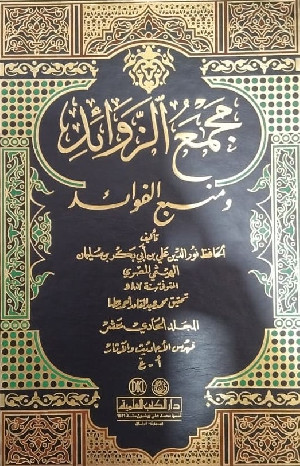 مجمع الزوائد
ومنبع الفوائد
تأليف
الحافظ نور الدين علي بن أبي بكر بن سليمان
الهيثمي المصري
المتوفى سنة ٨٠٧هـ
تحقيق محمد عبد القادر أحمد عطا
المجلد الحادي عشر
فهرس الأحاديث والآثار
أ - غ
دار الكتب العلمية